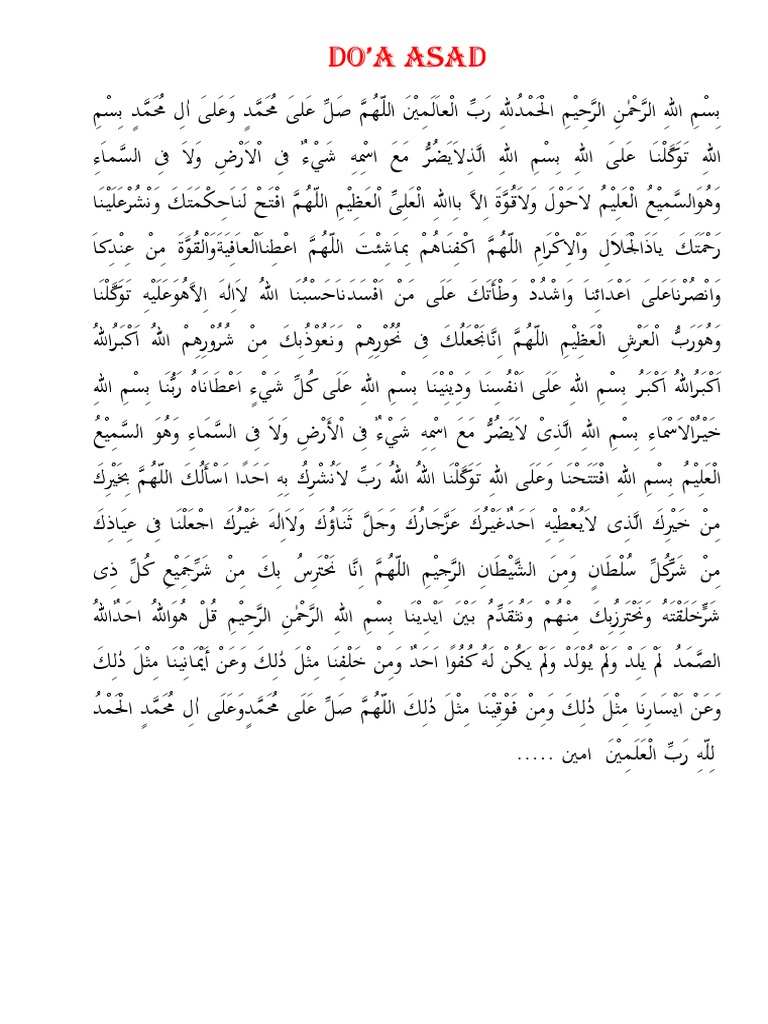 DO'A ASAD
بِسْمِ اللهِ الرَّحْمٰنِ الرَّحِيْمِ الْحَمْدُللهِ رَبِّ الْعاَلَمِيْنَ اللّهُمَّ صَلِّ عَلىَ مُحَمَّدٍ وَعَلىَ اٰلِ مُحَمَّدٍ بِسْمِ
اللهِ تَوَكَّلْنَا عَلىَ اللهِ بِسْمِ اللهِ الَّذِلاَيَضُرُّ مَعَ اسْمِهِ شَيْءٌ فىِ اْلاَرْضِ وَلاَ فىِ السَّماَءِ
وَهُوَالسَّمِيْعُ الْعَلِيْمُ لاَحَوْلَ وَلاَقُوَّةَ اِلاَّ بِااللهِ الْعَلِىِّ الْعَظِيْمِ اللّهُمَّ افْتَحْ لَناَحِكْمَتَكَ وَنْشُرْعَلَيْنَا
رَحْمَتَكَ ياَذَالْجَلاَلِ وَاْلاِكْرَامِ اللّهُمَّ اكْفِنَاهُمْ بِماَشِئْتَ اللّهُمَّ اعْطِناَاْلعاَفِيَةَوَالْقُوَّةَ مِنْ عِنْدِكاَ
وَانْصُرْناَعَلىَ اَعْدَائِناَ وَاشْدُدْ وَطْأَتَكَ عَلَى مَنْ اَفْسَدَناَحَسْبُنَا اللهُ لاَاِلهَ اِلاَّهُوَعَلَيْهِ تَوَكَّلْنَا
وَهُوَرَبُّ الْعَرْشِ الْعَظِيْمِ اللّهُمَّ اِنَّانَجْعَلُكَ فىِ نُحُوْرِهِمْ وَنَعُوْذُبِكَ مِنْ شُرُوْرِهِمْ اللهُ اَكْبَرُاللهُ
اَكْبَرُاللهُ اَكْبَرُ بِسْمِ اللهِ عَلَى اَنْفُسِنَا وَدِيْنِيْنَا بِسْمِ اللهِ عَلَى كُلِّ شَيْءٍ اَعْطَانَاهُ رَبُّنَا بِسْمِ اللهِ
خَيْرُاْلاَسْمَاءِ بِسْمِ اللهِ الَّذِىْ لاَيَضُرُّ مَعَ اسْمِهِ شَيْءٌ فىِ اْلأَرْضِ وَلاَ فىِ السَّمَاءِ وَهُوَ السَّمِيْعُ
الْعَلِيْمُ بِسْمِ اللهِ افْتَتَحْنَا وَعَلَى اللهِ تَوَكَّلْنَا اللهُ اللهُ رَبِّ لاَنُشْرِكُ بِهِ اَحَدًا اَسْأَلُكَ اللّهُمَّ بِخَيْرِكَ
مِنْ خَيْرِكَ الَّذِى لاَيُعْطِيْهِ اَحَدٌغَيْرُكَ عَزَّجَارُكَ وَجَلَّ ثَنَاؤُكَ وَلاَاِلهَ غَيْرُكَ اجْعَلْنَا فىِ عِيَاذِكَ
مِنْ شَرِّكُلِّ سُلْطَانٍ وَمِنَ الشَّيْطَانِ الرَّجِيْمِ اللّهُمَّ اِنَّا نَحْتَرِسُ بِكَ مِنْ شَرِّجَمِيْعِ كُلِّ ذِى
شَرٍّخَلَقْتَهُ وَنَحْتَرِزُبِكَ مِنْهُمْ وَنُتَقَدِّمُ بَيْنَ اَيْدِيْنَا بِسْمِ اللهِ الرَّحْمٰنِ الرَّحِيْمِ قُلْ هُوَاللهُ احَدٌاللهُ
الصَّمَدُ لَمْ يَلِدْ وَلَمْ يُوْلَدْ وَلَمْ يَكُنْ لَهُ كُفُوًا اَحَدٌ وَمِنْ خَلْفِنَا مِثْلَ ذٰلِكَ وَعَنْ أَيْمَانِيْنَا مِثْلَ ذٰلِكَ
وَعَنْ اَيْسَارِنَا مِثْلَ ذٰلِكَ وَمِنْ فَوْقِيْنَا مِثْلَ ذٰلِكَ اللّهُمَّ صَلِّ عَلَى مُحَمَّدٍوَعَلَى اٰلِ مُحَمَّدٍ الْحَمْدُ
لِلّٰهِ رَبِّ الْعَلَمِيْنَ امين .....